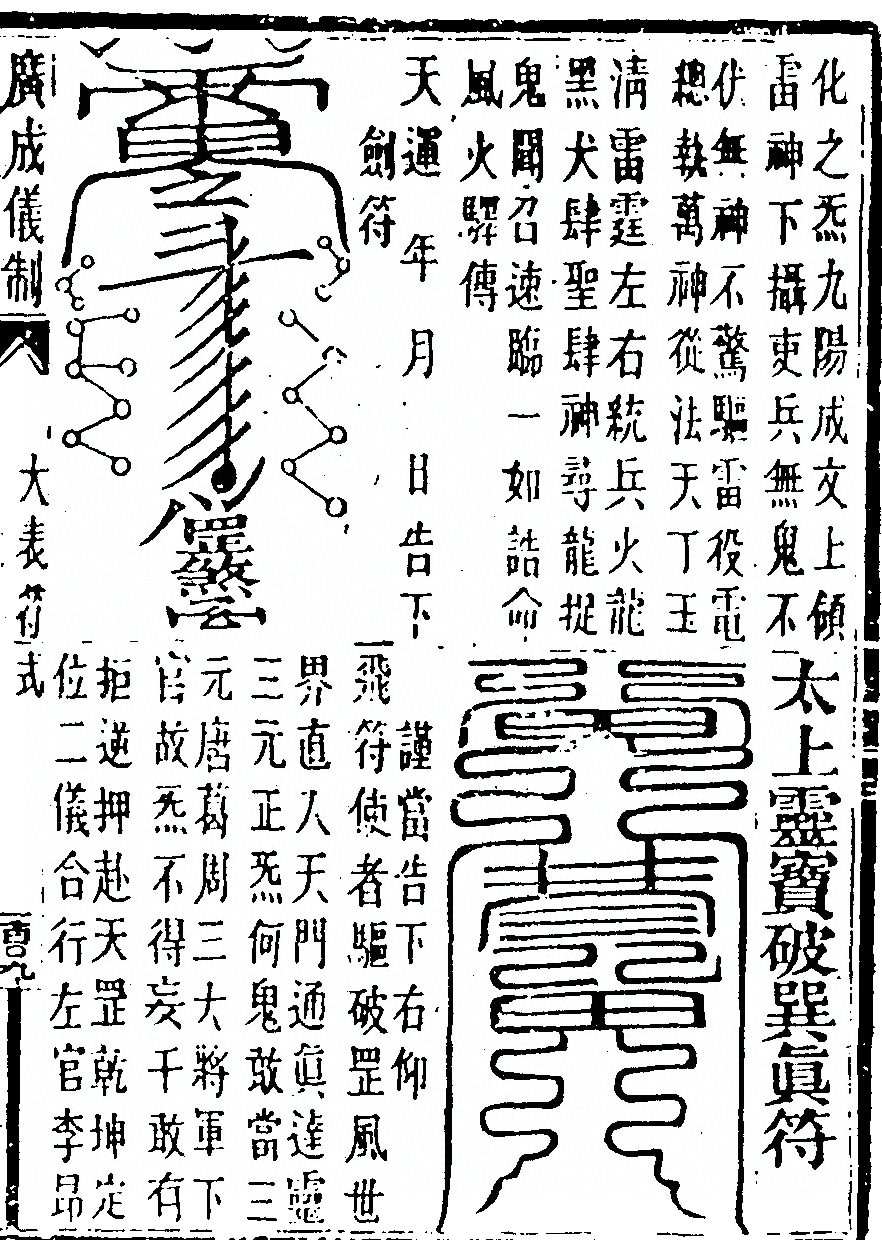 化之炁九陽成文上傾
雷神下攝吏兵無鬼不
伏無神不驚驅雷役電
總執萬神從法天丁玉
清雷霆左右統兵火龍
黑犬肆聖肆神尋龍捉
鬼聞召速臨一如誥命
風火驛傳
天運 年 月 日告下
劍符
太上靈寶破巽眞符
謹當告下右仰
飛符使者驅破罡風世
界直人天門通眞達靈
三元正炁何鬼敢當三
元唐葛周三大將軍下
官故炁不得妄干敢有
拒逆押赴天罡乾坤定
位二儀合行左官李昂
廣成儀制 大表符式